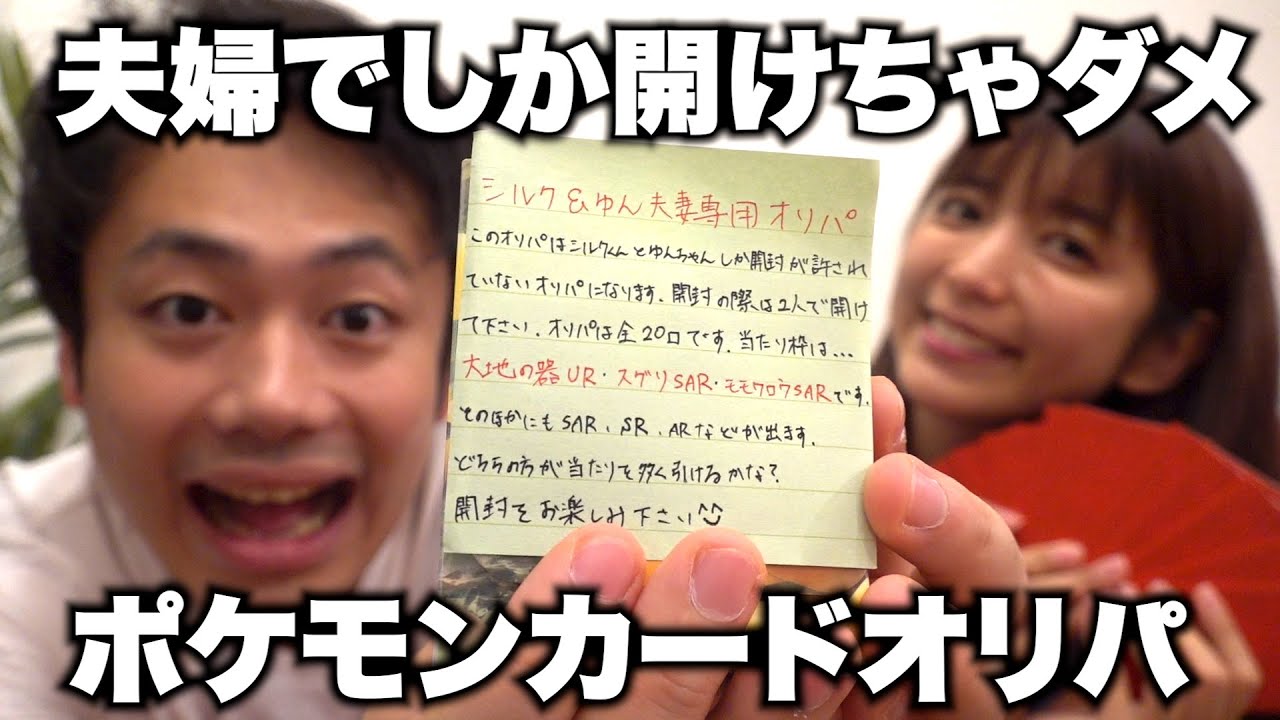 夫婦でしか開けちゃダメ
シルク&ゆん夫妻専用オリパ
このオリパはシルクくんとゆんちゃんしか開封が許され
ていないオリパになります。開封の際は2人で開け
て下さい。オリパは全20口です。当たり枠は...
大地の器UR・スグリSAR・モモワロウSARです。
そのほかにもSAR、SR、ARなどが出ます。
どちらの方が当たりを多く引けるかな?
開封をお楽しみ下さい^^
ポケモンカードオリパ